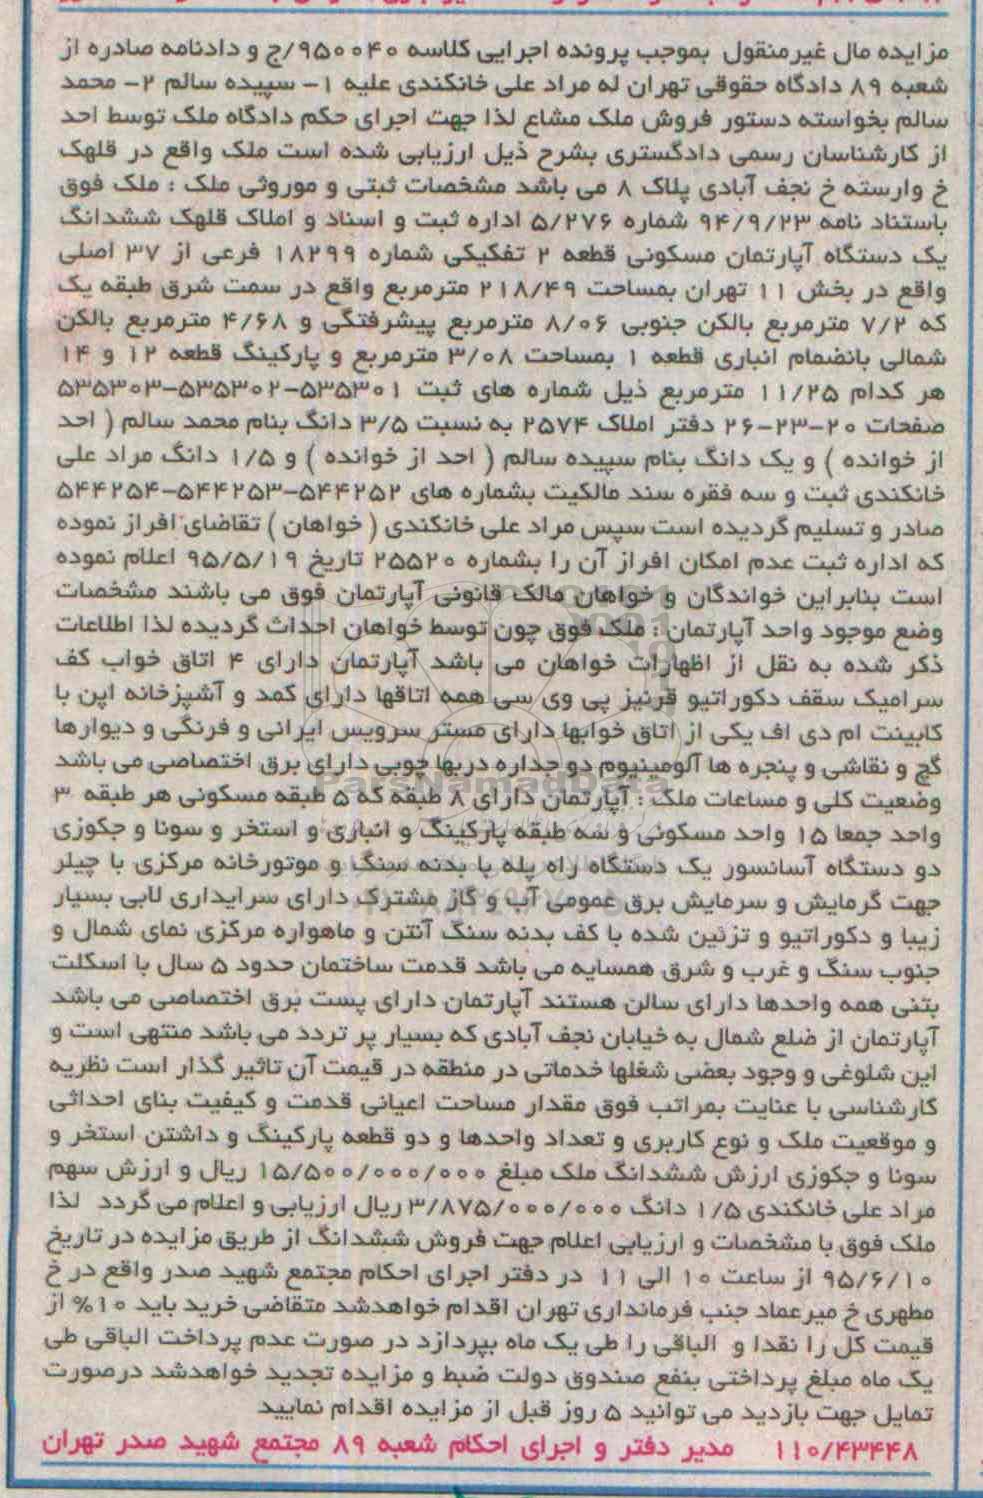 مزایده مال غیرمنقول بموجب پرونده اجرایی کلاسه ۹۵۰۰۴۰/ج و دادنامه صادره از
شعبه ۸۹ دادگاه حقوقی تهران له مراد علی خانکندی علیه ۱- سپیده سالم ۲- محمد
سالم بخواسته دستور فروش ملک مشاع لذا جهت اجرای حکم دادگاه ملک توسط احد
از کارشناسان رسمی دادگستری بشرح ذیل ارزیابی شده است ملک واقع در قلهک
خ وارسته خ نجف آبادی پلاک ۸ می باشد مشخصات ثبتی و موروثی ملک : ملک فوق
باستناد نامه ۹۴/۹/۲۳ شماره ۵/۲۷۶ اداره ثبت و اسناد و املاک قلهک ششدانگ
یک دستگاه آپارتمان مسکونی قطعه ۲ تفکیکی شماره ۱۸۲۹۹ فرعی از ۳۷ اصلی
واقع در بخش ۱۱ تهران بمساحت ۲۱۸/۴۹ مترمربع واقع در سمت شرق طبقه یک
که ۷/۲ مترمربع بالکن جنوبی ۸/۰۶ مترمربع پیشرفتگی و ۴/۶۸ مترمربع بالکن
شمالی بانضمام انباری قطعه ۱ بمساحت ۳/۰۸ مترمربع و پارکینگ قطعه ۱۲ و ۱۴
هر کدام ۱۱/۲۵ مترمربع ذیل شماره های ثبت ۵۳۵۳۰۱-۵۳۵۳۰۲-۵۳۵۳۰۳
صفحات ۲۰-۲۳-۲۶ دفتر املاک ۲۵۷۴ به نسبت ۳/۵ دانگ بنام محمد سالم ( احد
از خوانده ) و یک دانگ بنام سپیده سالم ( احد از خوانده ) و ۱/۵ دانگ مراد علی
خانکندی ثبت و سه فقره سند مالکیت بشماره های ۵۴۴۲۵۲-۵۴۴۲۵۳-۵۴۴۲۵۴
صادر و تسلیم گردیده است سپس مراد علی خانکندی ( خواهان ) تقاضای افراز نموده
که اداره ثبت عدم امکان افراز آن را بشماره ۲۵۵۲۰ تاریخ ۹۵/۵/۱۹ اعلام نموده
است بنابراین خواندگان و خواهان مالک قانونی آپارتمان فوق می باشند مشخصات
وضع موجود واحد آپارتمان : ملک فوق چون توسط خواهان احداث گردیده لذا اطلاعات
ذکر شده به نقل از اظهارات خواهان می باشد آپارتمان دارای ۴ اتاق خواب کف
سرامیک سقف دکوراتیو قرنیز پی وی سی همه اتاقها دارای کمد و آشپزخانه اپن با
کابینت ام دی اف یکی از اتاق خوابها دارای مستر سرویس ایرانی و فرنگی و دیوارها
گچ و نقاشی و پنجره ها آلومینیوم دو جداره دربها چوبی دارای برق اختصاصی می باشد
وضعیت کلی و مساعات ملک : آپارتمان دارای ۸ طبقه که ۵ طبقه مسکونی هر طبقه ۳
واحد جمعا ۱۵ واحد مسکونی و سه طبقه پارکینگ و انباری و استخر و سونا و جکوزی
دو دستگاه آسانسور یک دستگاه راه پله با بدنه سنگ و موتورخانه مرکزی با چیلر
جهت گرمایش و سرمایش برق عمومی آب و گاز مشترک دارای سرایداری لابی بسیار
زیبا و دکوراتیو و تزئین شده با کف بدنه سنگ آنتن و ماهواره مرکزی نمای شمال و
جنوب سنگ و غرب و شرق همسایه می باشد قدمت ساختمان حدود ۵ سال با اسکلت
بتنی همه واحدها دارای سالن هستند آپارتمان دارای پست برق اختصاصی می باشد
آپارتمان از ضلع شمال به خیابان نجف آبادی که بسیار پر تردد می باشد منتهی است و
این شلوغی و وجود بعضی شغلها خدماتی در منطقه در قیمت آن تاثیر گذار است نظریه
کارشناسی با عنایت بمراتب فوق مقدار مساحت اعیانی قدمت و کیفیت بنای احداثی
و موقعیت ملک و نوع کاربری و تعداد واحدها و دو قطعه پارکینگ و داشتن استخر و
سونا و جکوزی ارزش ششدانگ ملک مبلغ ۱۵/۵۰۰/۰۰۰/۰۰۰ ریال و ارزش سهم
مراد علی خانکندی ۱/۵ دانگ ۳/۸۷۵/۰۰۰/۰۰۰ ریال ارزیابی و اعلام می گردد لذا
ملک فوق با مشخصات و ارزیابی اعلام جهت فروش ششدانگ از طریق مزایده در تاریخ
۹۵/۶/۱۰ از ساعت ۱۰ الی ۱۱ در دفتر اجرای احکام مجتمع شهید صدر واقع در خ
مطهری خ میرعماد جنب فرمانداری تهران اقدام خواهدشد متقاضی خرید باید ۱۰% از
قیمت کل را نقدا و الباقی را طی یک ماه بپردازد در صورت عدم پرداخت الباقی طی
یک ماه مبلغ پرداختی بنفع صندوق دولت ضبط و مزایده تجدید خواهدشد درصورت
تمایل جهت بازدید می توانید ۵ روز قبل از مزایده اقدام نمایید
۱۱۰/۴۳۴۴۸ مدیر دفتر و اجرای احکام شعبه ۸۹ مجتمع شهید صدر تهران
ParsNamadData